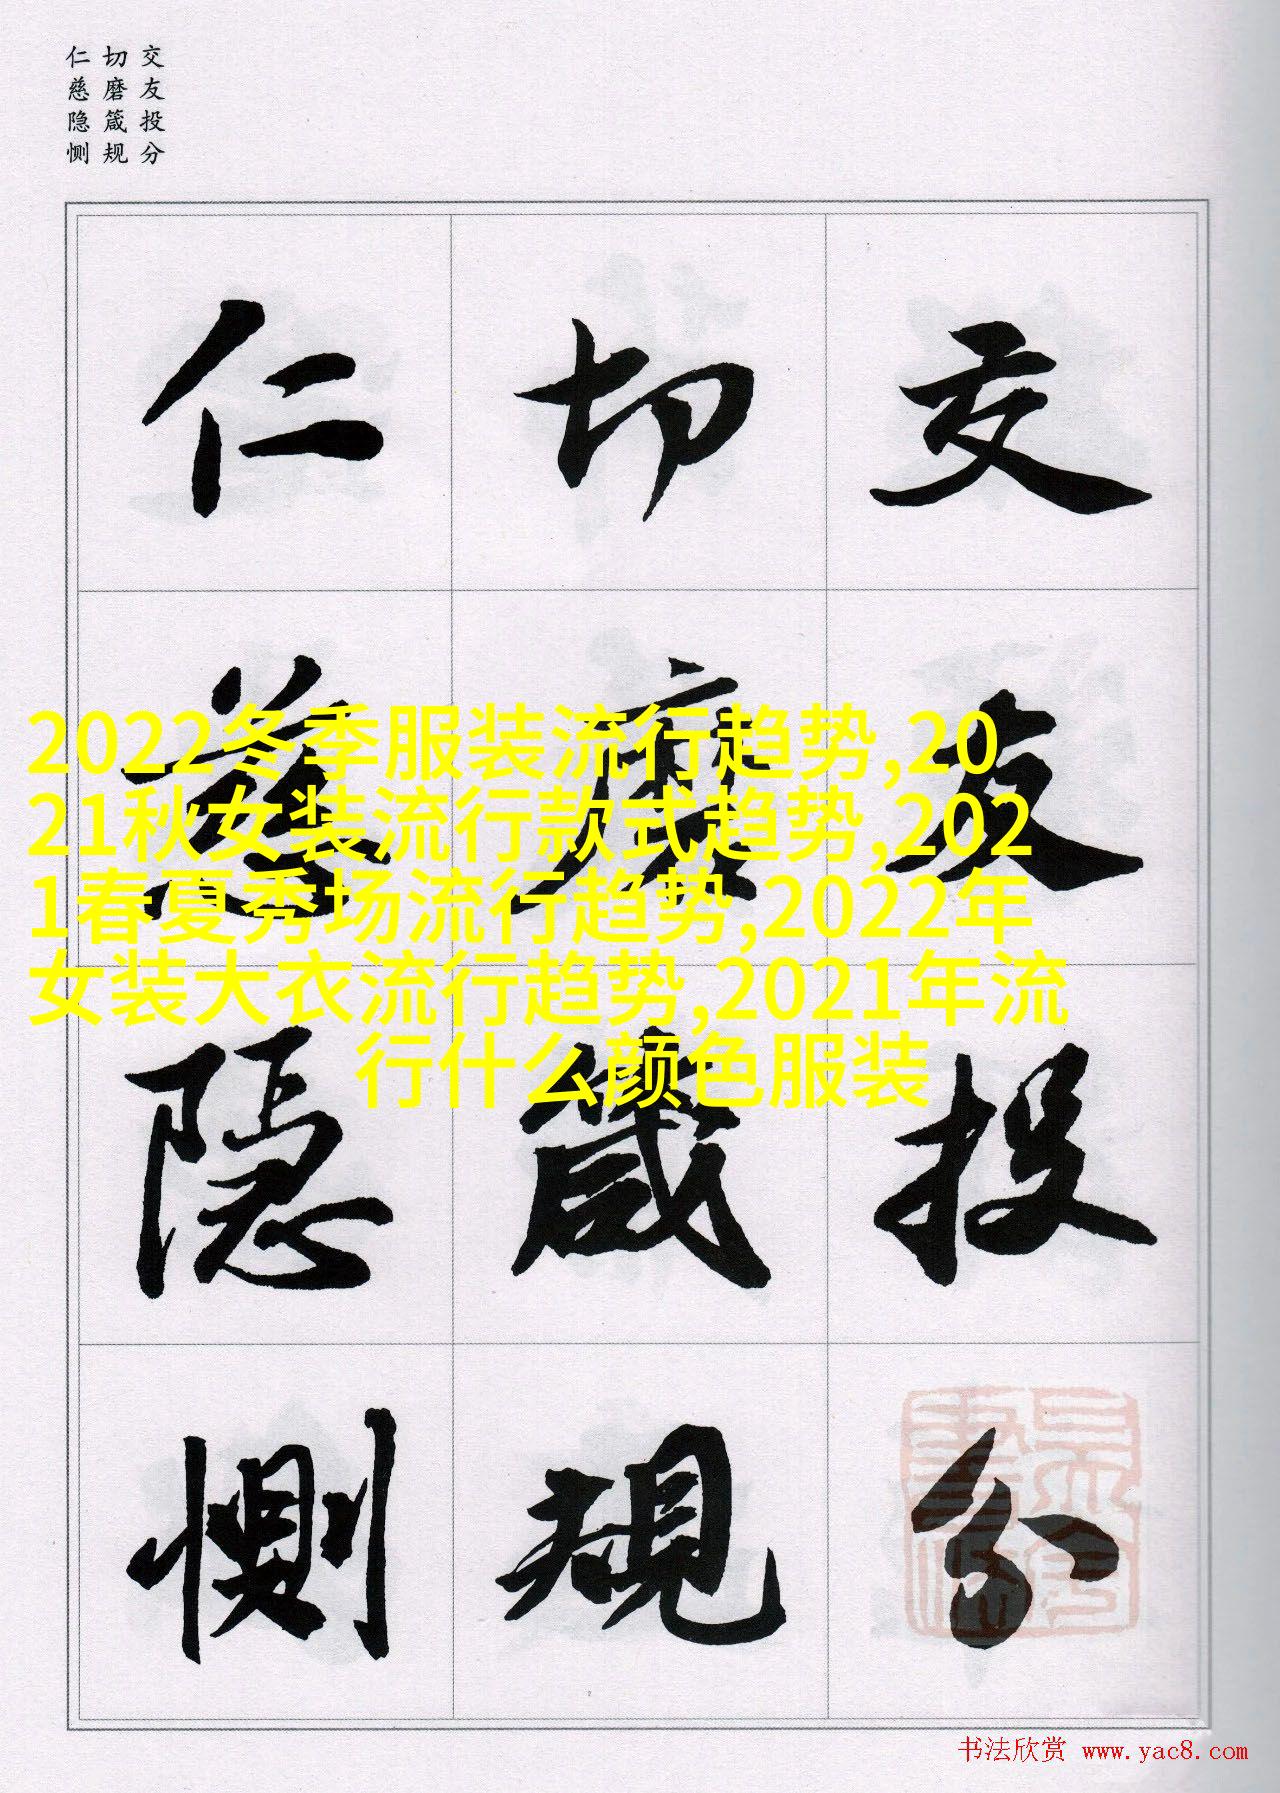 交友投分
切磨箴规
仁慈隐恻
交友投分
切磨箴規
仁慈隐恻
2022冬季服装流行趋势,20
21秋女装流行款式趋势,202
1春夏秀场流行趋势,2022年
女装大衣流行趋势,2021年流
行什么颜色服装
书法欣赏 www.yac8.com